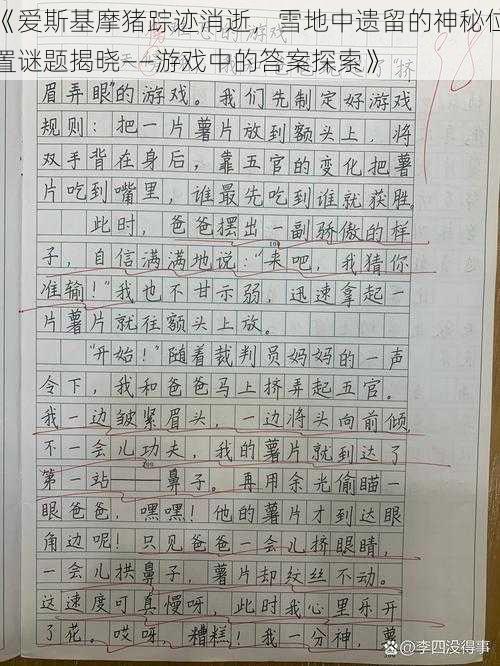 《爱斯基摩猪踪迹消逝，雪地中遗留的神秘位
置谜题揭晓——游戏中的答案探索》
98
眉弄眼的游戏。我们先制定好游戏
规则：把一片薯片放到额头上，将
双手背在身后，靠五官的变化把薯
片吃到嘴里，谁最先吃到谁就获胜。
此时，爸爸摆出一副骄傲的样
子，自信满满地说：“来吧，我猜你
准输！”我也不甘示弱，迅速拿起一
片薯片就往额头上放。
“开始！”随着裁判员妈妈的一声
令下，我和爸爸马上挤弄起五官。
我一边皱紧眉头，一边将头向前倾，
不一会儿功夫，我的薯片就到达了
第一站——鼻子。再用余光偷瞄一
眼爸爸，嘿嘿！他的薯片才到达眼
角边呢！只见爸爸一会儿挤眼睛，
一会儿拱鼻子，薯片却纹丝不动。
这速度可真慢呀，此时我心里乐开
了花。哎呀，糟糕！我一分神，薯
@李四没得事